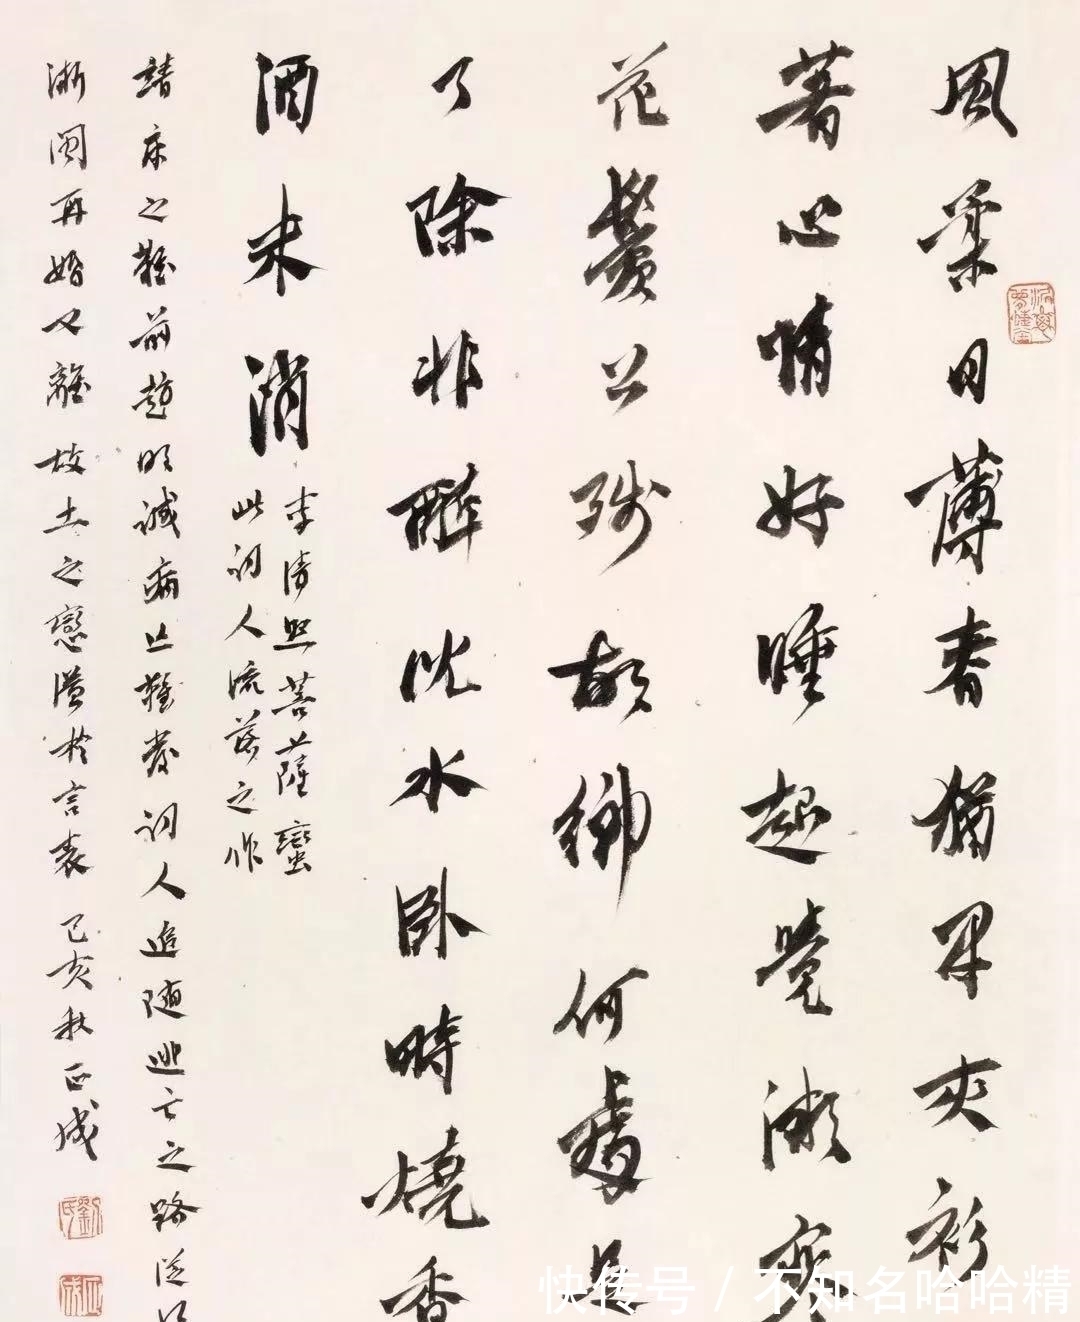 風柔日薄春猶早夾衫
著心情好睡起覺微寒
花鬢上殘故鄉何處是
了除非醉沈水臥時燒香
酒未消
李清照菩薩蠻
此詞人流落之作
靖康之難前趙明誠病亡難後詞人追隨逃亡之路從
浙閩再婚又離故土之戀溢於言表 己亥秋正成
劉氏
正成
快传号 / 不知名哈哈精